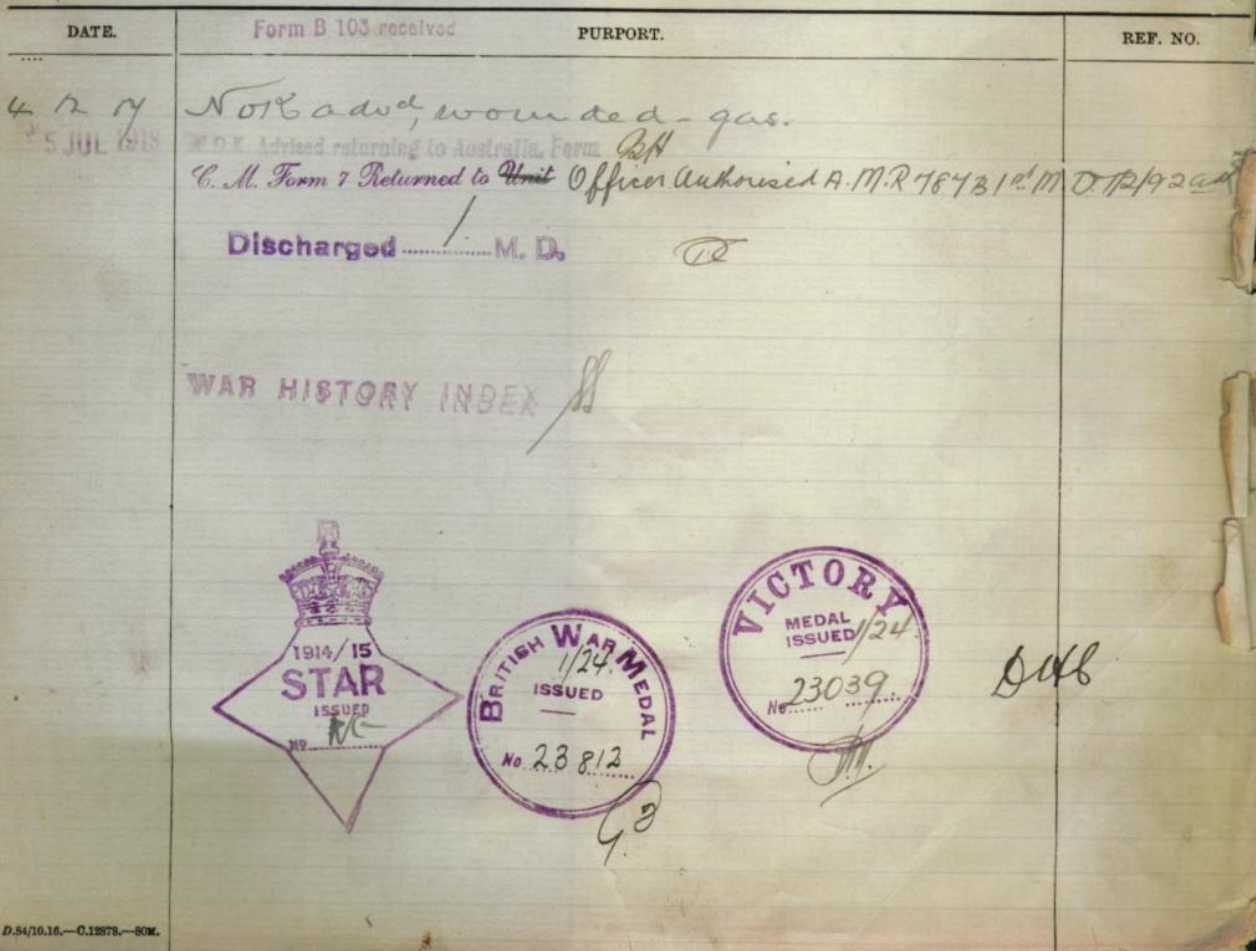 Form B 103 received
DATE. PURPORT. REF. NO.
4 12 17 NOK advd, wounded - gas.
5 JUL 1919 N.O.K. Advised returning to Australia. Form BH
C. M. Form 7 Returned to Unit Officer Authorised A.M.R 7873 1st M D. 12/92
Discharged 1 M. D.
WAR HISTORY INDEX
1914/15
STAR
ISSUED
NO
BRITISH WAR MEDAL
1/24.
ISSUED
No 23812
VICTORY
MEDAL
ISSUED 1/24.
No. 23039
D.84/10.16.—C.12878.—80M.